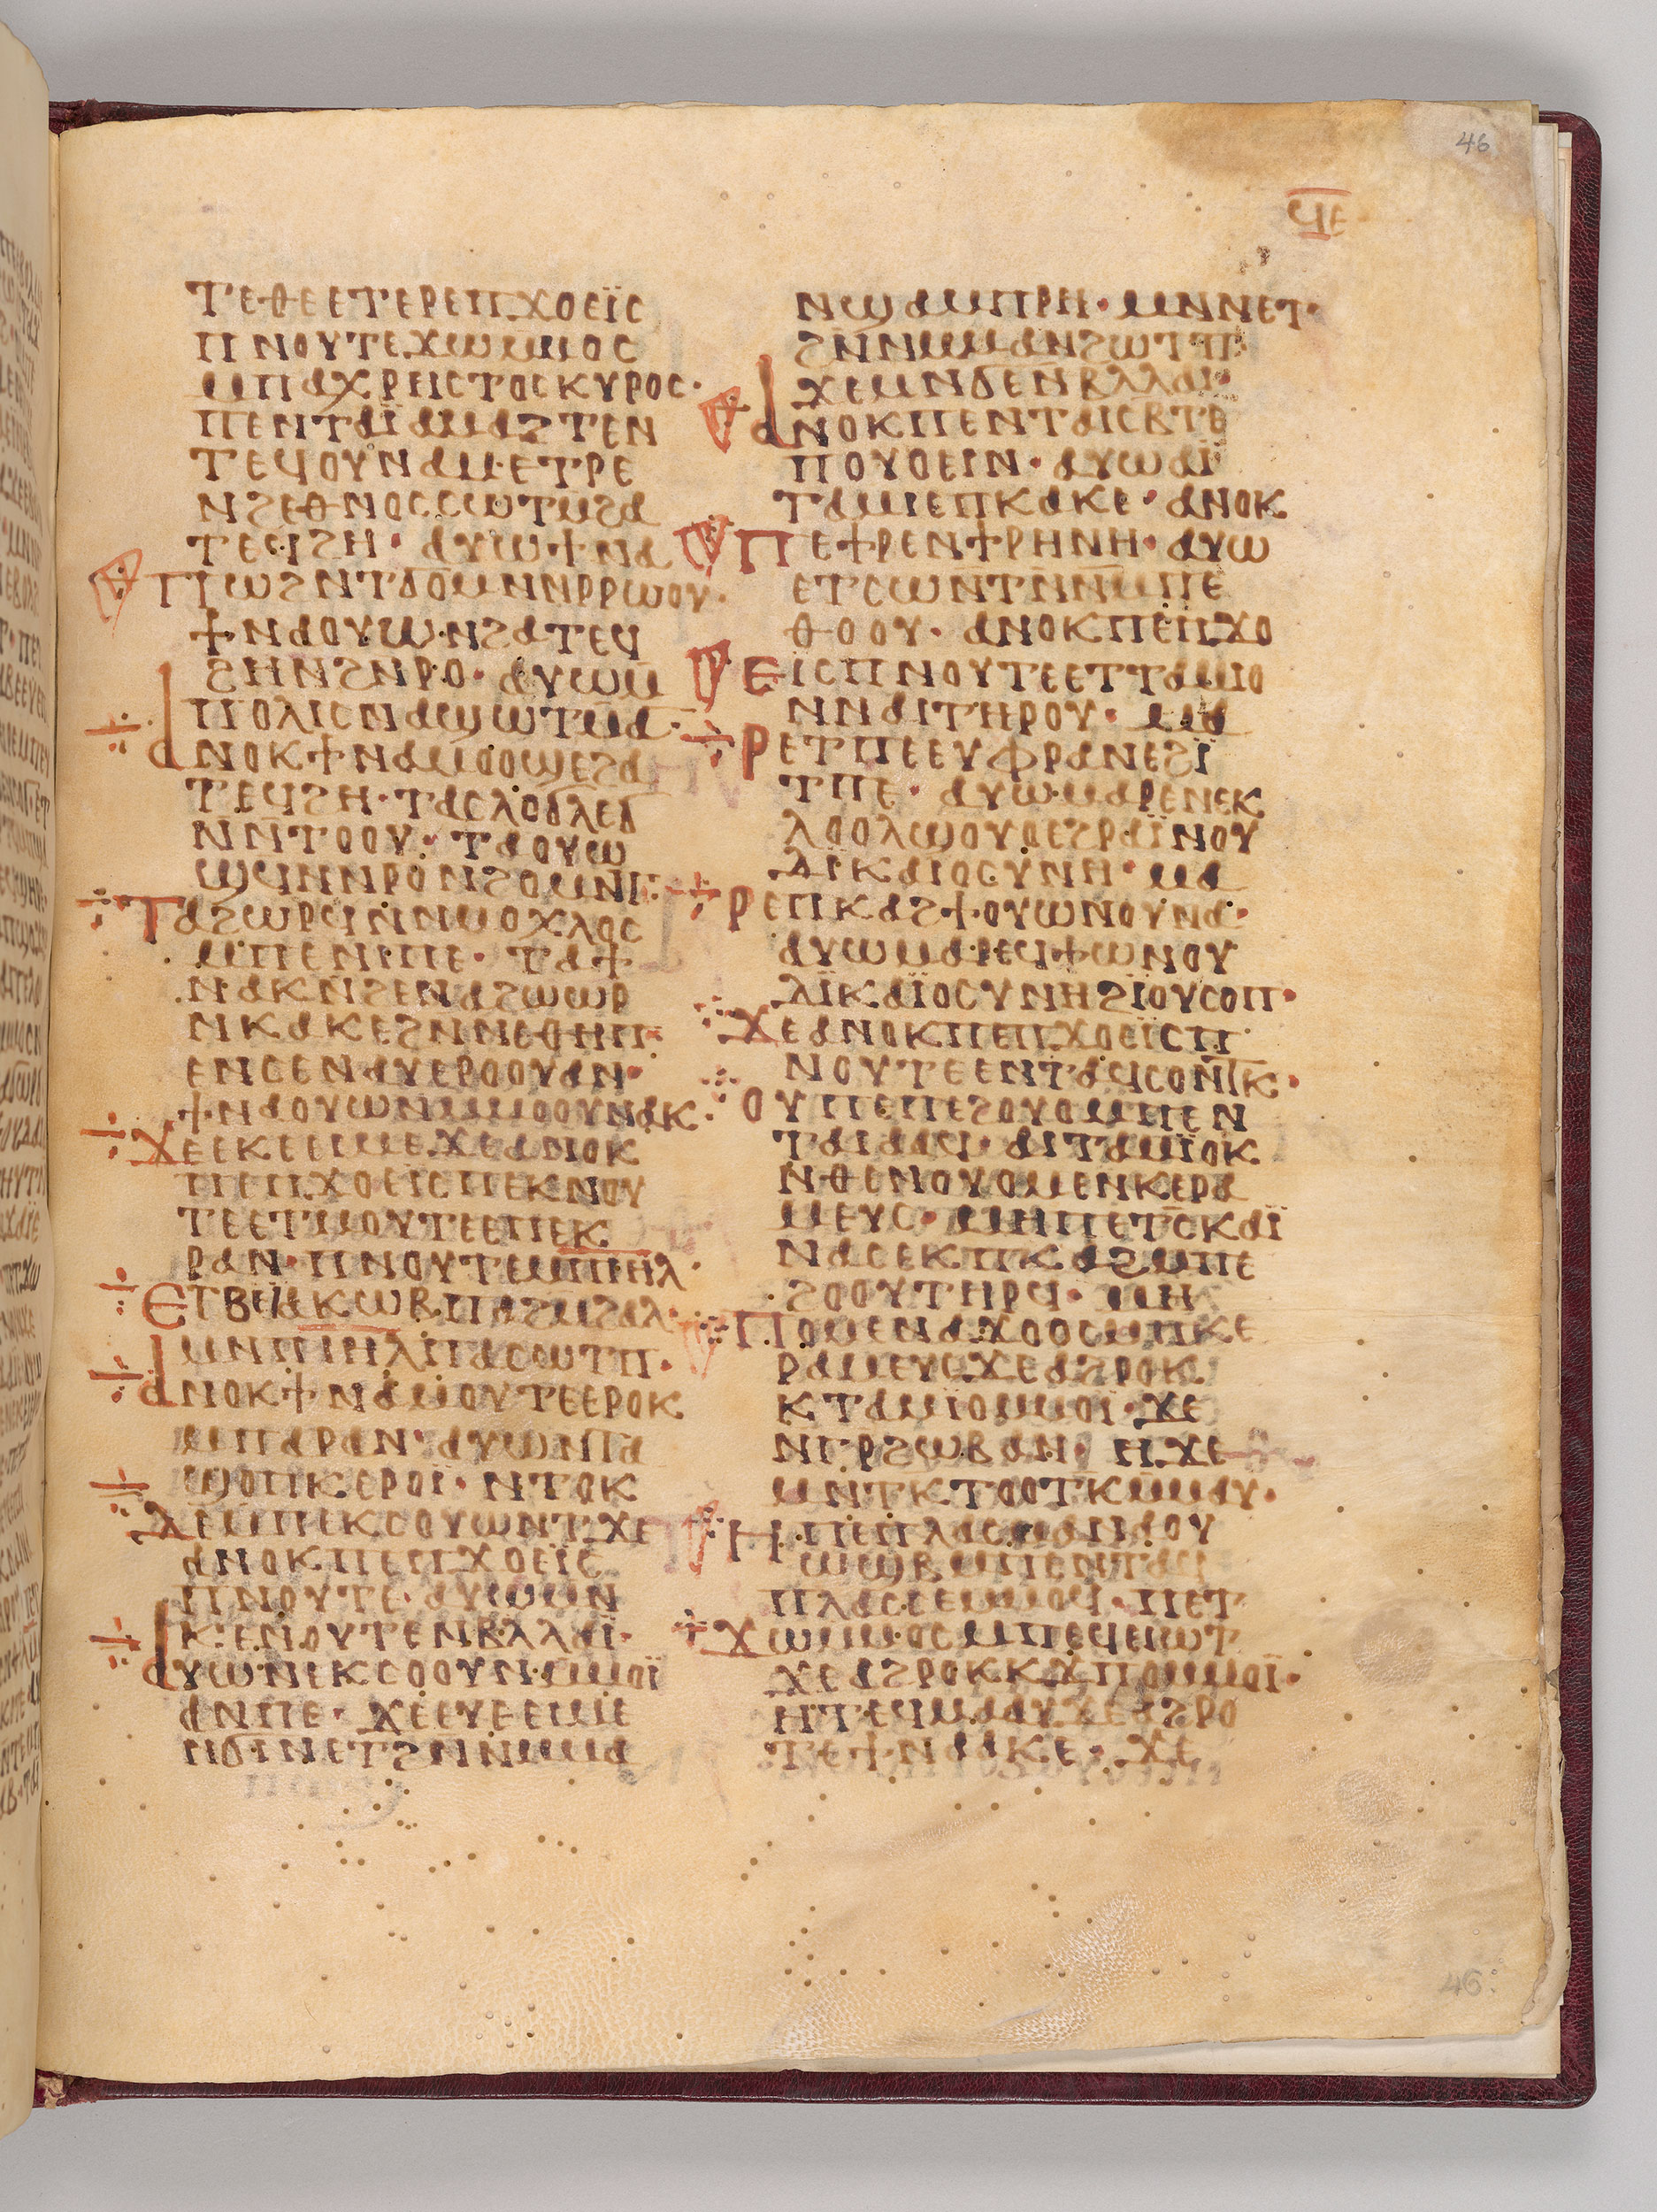 46
ϤⲈ
ⲦⲈ·ⲐⲈ ⲈⲦⲈⲢⲈⲠϪⲞⲈⲒ̈Ⲥ
ⲠⲚⲞⲨⲦⲈϪⲰⲘⲘⲞⲤ
ⲘⲠⲀⲬⲢⲈⲒⲤⲦⲞⲤⲔⲨⲢⲞⲤ·
ⲠⲈⲚⲦⲀⲒ̈ⲀⲘⲀϨⲦⲈⲚ
ⲦⲈϤⲞⲨⲚⲀⲘ·ⲈⲦⲢⲈ
ⲚϨⲈⲐⲚⲞⲤⲤⲰⲦⲘϨⲀ
ⲦⲈϤϨⲎ· ⲀⲨⲰϮⲚⲀ
ⲠⲰϨⲚⲦϬⲞⲘⲚⲚⲢⲢⲰⲞⲨ·
ϮⲚⲀⲞⲨⲰⲚϨⲀⲦⲈϤ
ϨⲎⲚϨⲚⲢⲞ· ⲀⲨⲰⲘ
ⲠⲞⲖⲒⲤⲚⲀϢⲰⲦⲘⲀ·
ⲀⲚⲞⲔϮⲚⲀⲘⲞⲞϢⲈϨⲀ
ⲦⲈϤϨⲎ·ⲦⲀⲤⲖⲞϬⲖⲈϬ
ⲚⲚⲦⲞⲞⲨ· ⲦⲀⲞⲨⲰ
ϢϤⲚⲚⲢⲞⲚϨⲞⲘⲚⲦ·
ⲦⲀϨⲰⲢϤⲚⲚⲘⲞⲬⲖⲞⲤ
ⲘⲠⲈⲚⲒⲠⲈ· ⲦⲀϮ
ⲚⲀⲔⲚϨⲈⲚⲀϨⲰⲰⲢ
ⲚⲔⲀⲔⲈϨⲚⲚⲈⲐⲎⲠ·
ⲈⲚⲤⲈⲚⲀⲨⲈⲢⲞⲞⲨⲀⲚ·
ϮⲚⲀⲞⲨⲰⲚⲘⲘⲞⲞⲨⲚⲀⲔ·
ϪⲈⲈⲔⲈⲈⲒⲘⲈϪⲈⲀⲚⲞⲔ
ⲠⲈⲠϪⲞⲈⲒⲤⲠⲈⲔⲚⲞⲨ
ⲦⲈⲈⲦⲘⲞⲨⲦⲈⲈⲠⲈⲔ
ⲢⲀⲚ·ⲠⲚⲞⲨⲦⲈⲘⲠⲒⲎⲖ·
ⲈⲦⲂⲈⲒ̈ⲀⲔⲰⲂⲠⲀϨⲘϨⲀⲖ·
ⲘⲚⲠⲒⲎⲖⲠⲀⲤⲰⲦⲠ·
ⲀⲚⲞⲔϮⲚⲀⲘⲞⲨⲦⲈⲈⲢⲞⲔ
ⲘⲠⲀⲢⲀⲚ·ⲀⲨⲰⲚⲦⲀ
ϢⲞⲠⲔⲈⲢⲞⲒ̈·ⲚⲦⲞⲔ
ⲆⲈⲘⲠⲈⲔⲤⲞⲨⲰⲚⲦ·ϪⲈ
ⲀⲚⲞⲔⲠⲈⲠϪⲞⲈⲒ̈Ⲥ
ⲠⲚⲞⲨⲦⲈ·ⲀⲨⲰⲘⲚ
ⲔⲈⲚⲞⲨⲦⲈⲚⲂⲖⲖⲀⲒ̈·
ⲀⲨⲰⲚⲈⲔⲤⲞⲞⲨⲚ·ⲘⲘⲞⲒ̈
ⲀⲚⲠⲈ· ϪⲈⲈⲨⲈⲈⲒⲘⲈ
ⲚϬⲒⲚⲈⲦϨⲚⲚⲘⲀ
ⲚϢⲀⲘⲠⲢⲎ·ⲘⲚⲚⲈⲦ·
ϨⲚⲚⲘⲘⲀⲚϨⲰⲦⲠ·
ϪⲈⲘⲚϬⲈⲚⲂⲖⲖⲀⲒ·
ⲀⲚⲞⲔⲠⲈⲚⲦⲀⲒⲤⲂⲦⲈ
ⲠⲞⲨⲞⲈⲒⲚ·ⲀⲨⲰⲀⲒ̈
ⲦⲀⲘⲒⲈⲠⲔⲀⲔⲈ·ⲀⲚⲞⲔ
ⲠⲈϮⲢⲈⲚϮⲢⲎⲚⲎ·ⲀⲨⲰ
ⲈⲦⲤⲰⲚⲦⲚⲚⲘⲠⲈ
ⲐⲞⲞⲨ· ⲀⲚⲞⲔⲠⲈⲠϪⲞ
ⲈⲒⲤⲠⲚⲞⲨⲦⲈⲈⲦⲦⲀⲘⲒⲞ
ⲚⲚⲀⲒⲦⲎⲢⲞⲨ· ⲘⲀ
ⲢⲈⲦⲠⲈⲈⲨⲪⲢⲀⲚⲈϨⲒ̈
ⲦⲠⲈ· ⲀⲨⲰ·ⲘⲀⲢⲈⲚⲈⲔ
ⲖⲞⲞⲖⲈϢⲞⲨⲞⲈϨⲢⲀⲒ̈ⲚⲞⲨ
ⲆⲒⲔⲀⲒⲞⲤⲨⲚⲎ·ⲘⲀ
ⲢⲈⲠⲔⲀϨϮⲞⲨⲰⲚⲞⲨⲚⲀ·
ⲀⲨⲰⲘⲀⲢⲈϤϮⲰⲚⲞⲨ
ⲆⲒ̈ⲔⲀⲒ̈ⲞⲤⲨⲚⲎϨⲒ̈ⲞⲨⲤⲞⲠ·
ϪⲈⲀⲚⲞⲔⲠⲈⲠϪⲞⲈⲒ̈ⲤⲠ
ⲚⲞⲨⲦⲈⲈⲚⲦⲀϤⲤⲞⲚⲦⲔ·
ⲞⲨⲠⲈⲠⲈϨⲞⲨⲞⲘⲠⲈⲚ
ⲦⲀⲒⲀⲀϤ· ⲀⲒⲦⲀⲘⲒ̈ⲞⲔ
ⲚⲐⲈⲚⲞⲨⲞⲘⲈⲚⲔⲈⲢⲀ
ⲘⲈⲨⲤ· ⲘⲎⲠⲈⲦⲤⲔⲀⲒ̈
ⲚⲀⲤⲈⲔⲠⲔⲀϨⲘⲠⲈ
ϨⲞⲞⲨⲦⲎⲢϤ· ⲘⲎ
ⲠⲞⲘⲈⲚⲀϪⲞⲞⲤⲘⲠⲔⲈ
ⲢⲀⲘⲈⲨⲤϪⲈⲀϨⲢⲞⲔ
ⲔⲦⲀⲘⲒⲞⲘⲘⲞⲒ̈·ϪⲈ
ⲚⲄⲢϨⲰⲂⲀⲚ· Ⲏ ϪⲈ
ⲘⲚⲦⲔⲦⲞⲞⲦⲔⲘⲘⲀⲨ·
ⲎⲠⲈⲠⲖⲀⲤⲘⲀⲚⲀⲞⲨ
ⲰϢⲂⲘⲠⲈⲚⲦⲀϤ
ⲠⲖⲀⲤⲤⲈⲘⲘⲞϤ·ⲠⲈⲦ
ϪⲰⲘⲘⲞⲤⲘⲠⲈϤⲈⲒⲰⲦ
ϪⲈⲀϨⲢⲞⲔⲔϪⲠⲞⲘⲘⲞⲒ̈·
ⲎⲦⲈϤⲘⲀⲀⲨϪⲈⲀϨⲢⲞ
ⲦⲈϮⲚⲀⲀⲔⲈ· ϪⲈ
46